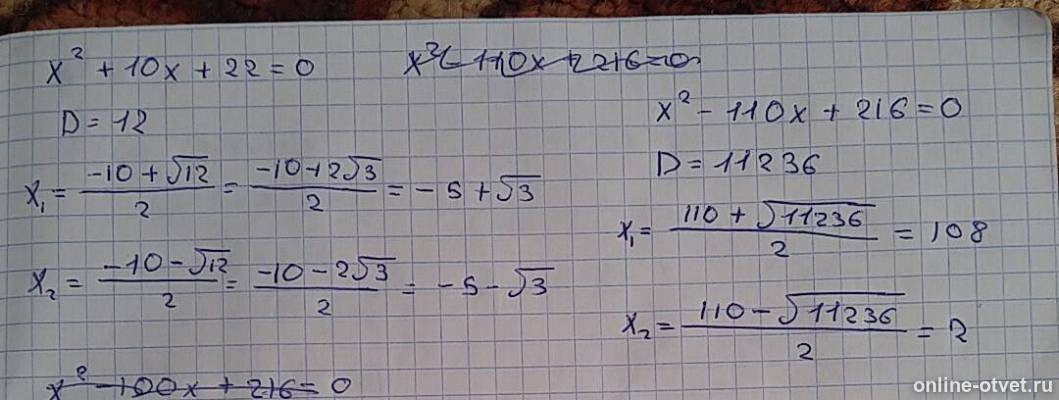 x² + 10x + 22 = 0
D = 12
x₁ = (-10 + √12)/2 = (-10 + 2√3)/2 = -5 + √3
x₂ = (-10 - √12)/2 = (-10 - 2√3)/2 = -5 - √3
x² - 100x + 216 = 0
x² - 110x + 216 = 0
x² - 110x + 216 = 0
D = 11236
x₁ = (110 + √11236)/2 = 108
x₂ = (110 - √11236)/2 = 2
online-otvet.ru